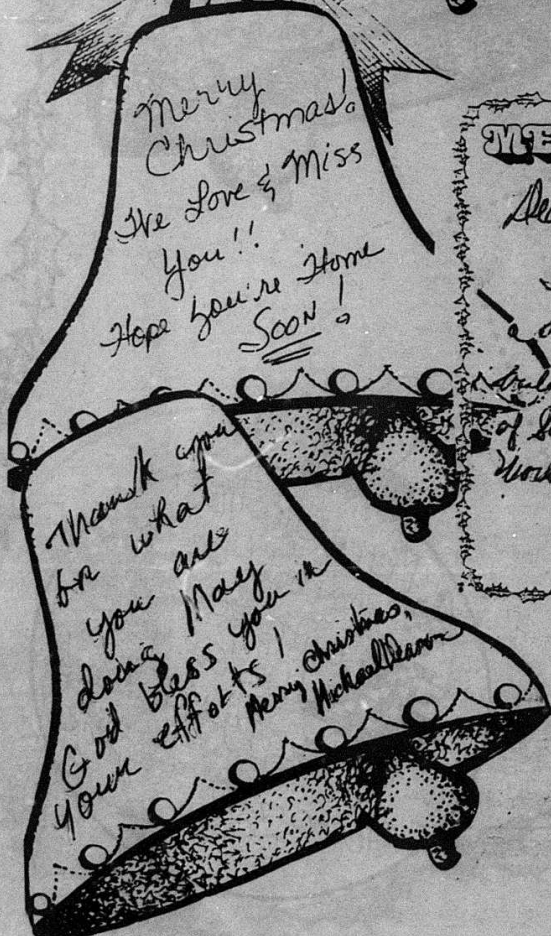 Merry
Christmas!
We Love & Miss
You!!
Hope you're Home
Soon!
Thank you
for what
you are
doing May
God bless you in
your efforts!
Merry Christmas,
Michael
ME
of